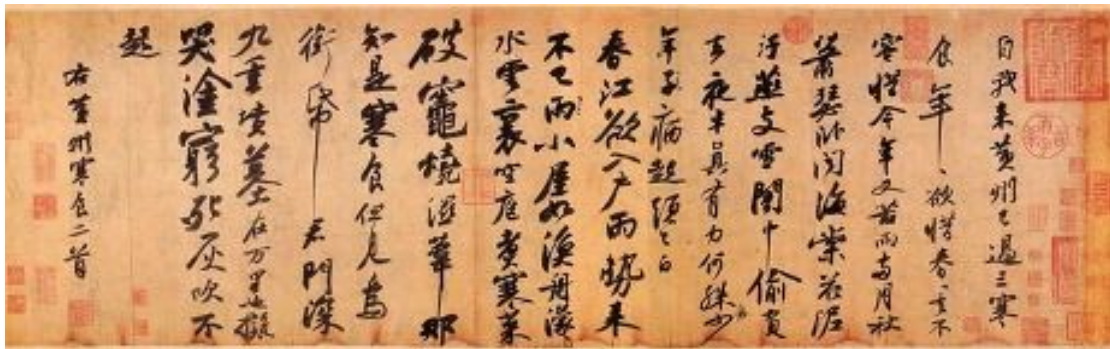 自我來黃州已過三寒
食年〻欲惜春〻去不
容惜今年又苦雨兩月秋
蕭瑟臥聞海棠花泥
汙燕支雪闇中偷負
去夜半真有力何殊少
年子病起頭已白
春江欲入戶雨勢來
不已雨小屋如漁舟濛〻
水雲裏空庖煮寒菜
破竈燒溼葦那
知是寒食但見烏
銜帋君門深
九重墳墓在万里也擬
哭塗窮死灰吹不
起
右黃州寒食二首